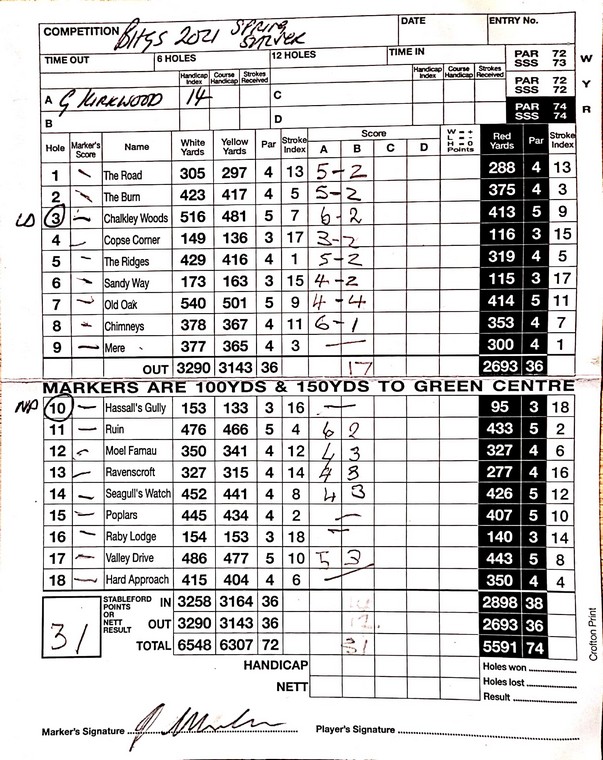 COMPETITION BHGS 2021 SPRING SILVER DATE ENTRY No.
TIME OUT 6 HOLES 12 HOLES TIME IN PAR 72 SSS 73 W
Handicap Index Course Handicap Strokes Received Handicap Index Course Handicap Strokes Received PAR 72 SSS 72 Y
A G KIRKWOOD 14 C PAR 74 SSS 74 R
B D
Hole Marker's Score Name White Yards Yellow Yards Par Stroke Index Score A B C D W = + L = - H = 0 Points Red Yards Par Stroke Index
1 The Road 305 297 4 13 5-2 288 4 13
2 The Burn 423 417 4 5 5-2 375 4 3
LD 3 Chalkley Woods 516 481 5 7 6-2 413 5 9
4 Copse Corner 149 136 3 17 3-2 116 3 15
5 The Ridges 429 416 4 1 5-2 319 4 5
6 Sandy Way 173 163 3 15 4-2 115 3 17
7 Old Oak 540 501 5 9 4-4 414 5 11
8 Chimneys 378 367 4 11 6-1 353 4 7
9 Mere 377 365 4 3 — 300 4 1
OUT 3290 3143 36 17 2693 36
MARKERS ARE 100YDS & 150YDS TO GREEN CENTRE
NP 10 Hassall's Gully 153 133 3 16 — 95 3 18
11 Ruin 476 466 5 4 6 2 433 5 2
12 Moel Famau 350 341 4 12 4 3 327 4 6
13 Ravenscroft 327 315 4 14 4 3 277 4 16
14 Seagull's Watch 452 441 4 8 4 3 426 5 12
15 Poplars 445 434 4 2 — 407 5 10
16 Raby Lodge 154 153 3 18 — 140 3 14
17 Valley Drive 486 477 5 10 5 3 443 5 8
18 Hard Approach 415 404 4 6 — 350 4 4
31 STABLEFORD POINTS OR NETT RESULT IN 3258 3164 36 14 2898 38
OUT 3290 3143 36 17 2693 36
TOTAL 6548 6307 72 31 5591 74
HANDICAP Holes won
NETT Holes lost
Result
Crofton Print
Marker's Signature Player's Signature